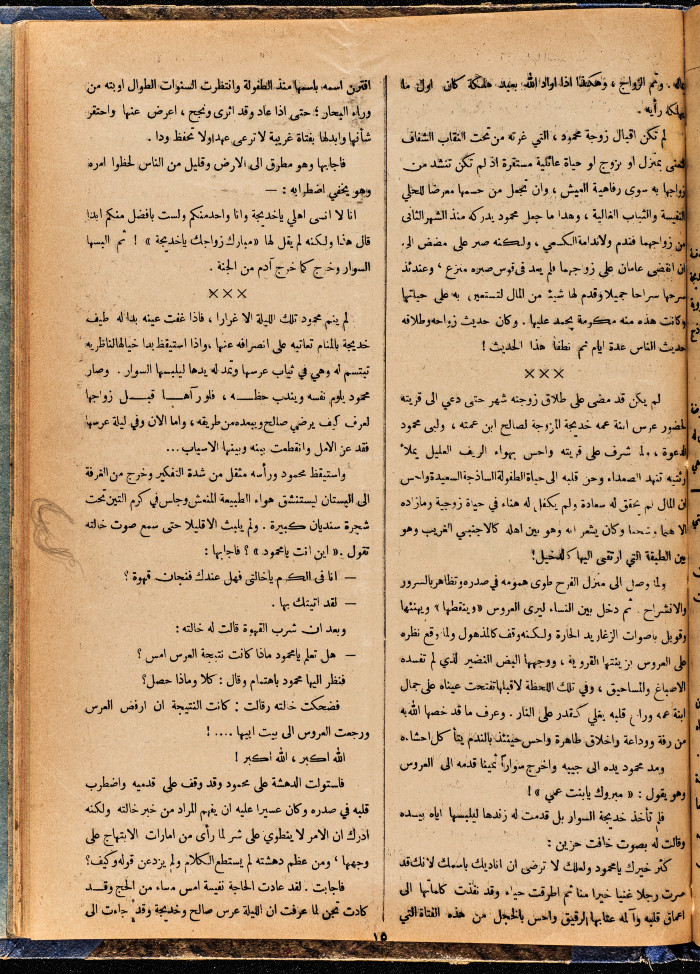 ماله . وتم الزواج ، وهكذا اذا اراد الله بعبد هلكة كان اول ما
يهلكه رأيه .
لم تكن اقبال زوجة محمود ، التي غرته من تحت النقاب الشفاف
لتعنى بمنزل او بزوج او حياة عائلية مستقرة اذ لم تكن تنشد من
زواجها به سوى رفاهية العيش ، وان تجعل من جسمها معرضا للحلي
النفيسة والثياب الغالية ، وهذا ما جعل محمود يدركه منذ الشهر الثاني
من زواجهما فندم ولاندامة الكسعي ، ولكنه صبر على مضض الى
ان انقضى عامان على زواجهما فلم يعد في قوس صبره منزع ، وعندئذ
سرحها سراحا جميلا وقدم لها شيئ من المال لتستعين به على حياتها
وكانت هذه منه مكرمة يحمد عليها . وكان حديث زواجه وطلاقه
حديث الناس عدة ايام ثم نطفأ هذا الحديث !
×××
لم يكن قد مضى على طلاق زوجته شهر حتى دعي الى قريته
لحضور عرس ابنة عمه خديجة المزوجة لصالح ابن عمته ، ولبى محمود
الدعوة ، ولما شرف على قريته واحس بهواء الريف العليل يملأ
رئتيه تنهد الصعداء وحن قلبه الى حياة الطفولة الساذجة السعيدة واحس
ان المال لم يحقق له سعادة ولم يكفل له هناء في حياة زوجية
الا هما وشجنا وكان يشعر انه وهو بين اهله كالاجنبي الغريب وهو
بين الطبقة التي ارتقى اليها كالدخيل!
ولما وصل الى منزل الفرح طوى همومه في صدره وتظاهر بالسرور
والانشراح . ثم دخل بين النساء ليرى العروس «وينقطها» ويهنئها
وقوبل باصوات الزغاريد الحارة ولكنه وقف كالمذهول ولما وقع نظره
على العروس بزينتها القروية ، ووجهها البض النضير الذي لم تفسده
الاصباغ والمساحيق ، وفي تلك اللحظة لاقبلها تفتحت عيناه على جمال
ابنة عمه وراح قلبه يغلي كقدر على النار . وعرف ما قد خصها الله به
من رقة ووداعة واخلاق طاهرة واحس حينئذ بالندم يتأكل احشاءه
ومد محمود يده الى جيبه واخرج سواراً ثمينا قدمه الى العروس
وهو يقول : «مبروك يابنت عمي» !
فلم تأخذ خديجة السوار بل قدمت له زندها ليلبسها اياه بيده
وقالت له بصوت خافت حزين :
كثر خيرك يامحمود ولعلك لا ترضى ان اناديك باسمك لانك قد
صرت رجلا غنيا خيرا منا ثم اطرقت حياء وقد نفذت كلماتها الى
اعماق قلبه وآلمه عتابها الرقيق واحس بالخجل من هذه الفتاة التي
اقترن اسمه باسمها منذ الطفولة وانتظرت السنوات الطوال اوبته من
وراء البحار ؛ حتى اذا عاد وقد اثرى ونجح ، اعرض عنها واحتقر
شأنها وابدلها بفتاة غريبة لا ترعى عهدا ولا تحفظ ودا .
فاجابها وهو مطرق الى الارض وقليل من الناس لحظوا امره
وهو يخفي اضطرابه : —
انا لا انسى اهلي ياخديجة وانا واحد منكم ولست بافضل منكم ابدا
قال هذا ولكنه لم يقل لها «مبارك زواجك ياخديجة» ! ثم البسها
السوار وخرج كما خرج آدم من الجنة .
×××
لم ينم محمود تلك الليلة الا غرارا ، فاذا غفت عينه بدا له طيف
خديجة بالمنام تعاتبه على انصرافه عنها ،واذا استيقظ بدا خيالها لناظريه
تبتسم له وهي في ثياب عرسها وتمد له يدها ليلبسها السوار . وصار
محمود يلوم نفسه ويندب حظه ، فلو رآها قبل زواجها
لعرف كيف يرضي صالح ويبعده من طريقه ، واما الان وفي ليلة عرسها
فقد عز الامل وانقطعت بينه وبينها الاسباب...
واستيقظ محمود ورأسه مثقل من شدة التفكير وخرج من الغرفة
الى البستان ليستنشق هواء الطبيعة المنعش وجلس في كرم التين تحت
شجرة سنديان كبيرة . ولم يلبث الا قليلا حتى سمع صوت خالته
تقول . «اين انت يامحمود» ؟ فاجابها :
— انا في الكرم ياخالتي فهل عندك فنجان قهوة ؟
— لقد اتيتك بها .
وبعد ان شرب القهوة قالت له خالته :
— هل تعلم يامحمود ماذا كانت نتيجة العرس امس ؟
فنظر اليها محمود باهتمام وقال : كلا وماذا حصل؟
فضحكت خالته وقالت : كانت النتيجة ان ارفض العرس
ورجعت العروس الى بيت ابيها .... !
الله اكبر ، الله اكبر !
فاستولت الدهشة على محمود وقد وقف على قدميه واضطرب
قلبه في صدره وكان عسيرا عليه ان يفهم المراد من خبر خالته ولكنه
ادرك ان الامر لا ينطوي على شر لما رأى من امارات الابتهاج على
وجهها ، ومن عظم دهشته لم يستطع الكلام ولم يزد عن قوله وكيف؟
فاجابت . لقد عادت الحاجة نفيسة امس مساء من الحج وقد
كادت تجن لما عرفت ان الليلة عرس صالح وخديجة وقد جاءت الى
١٥